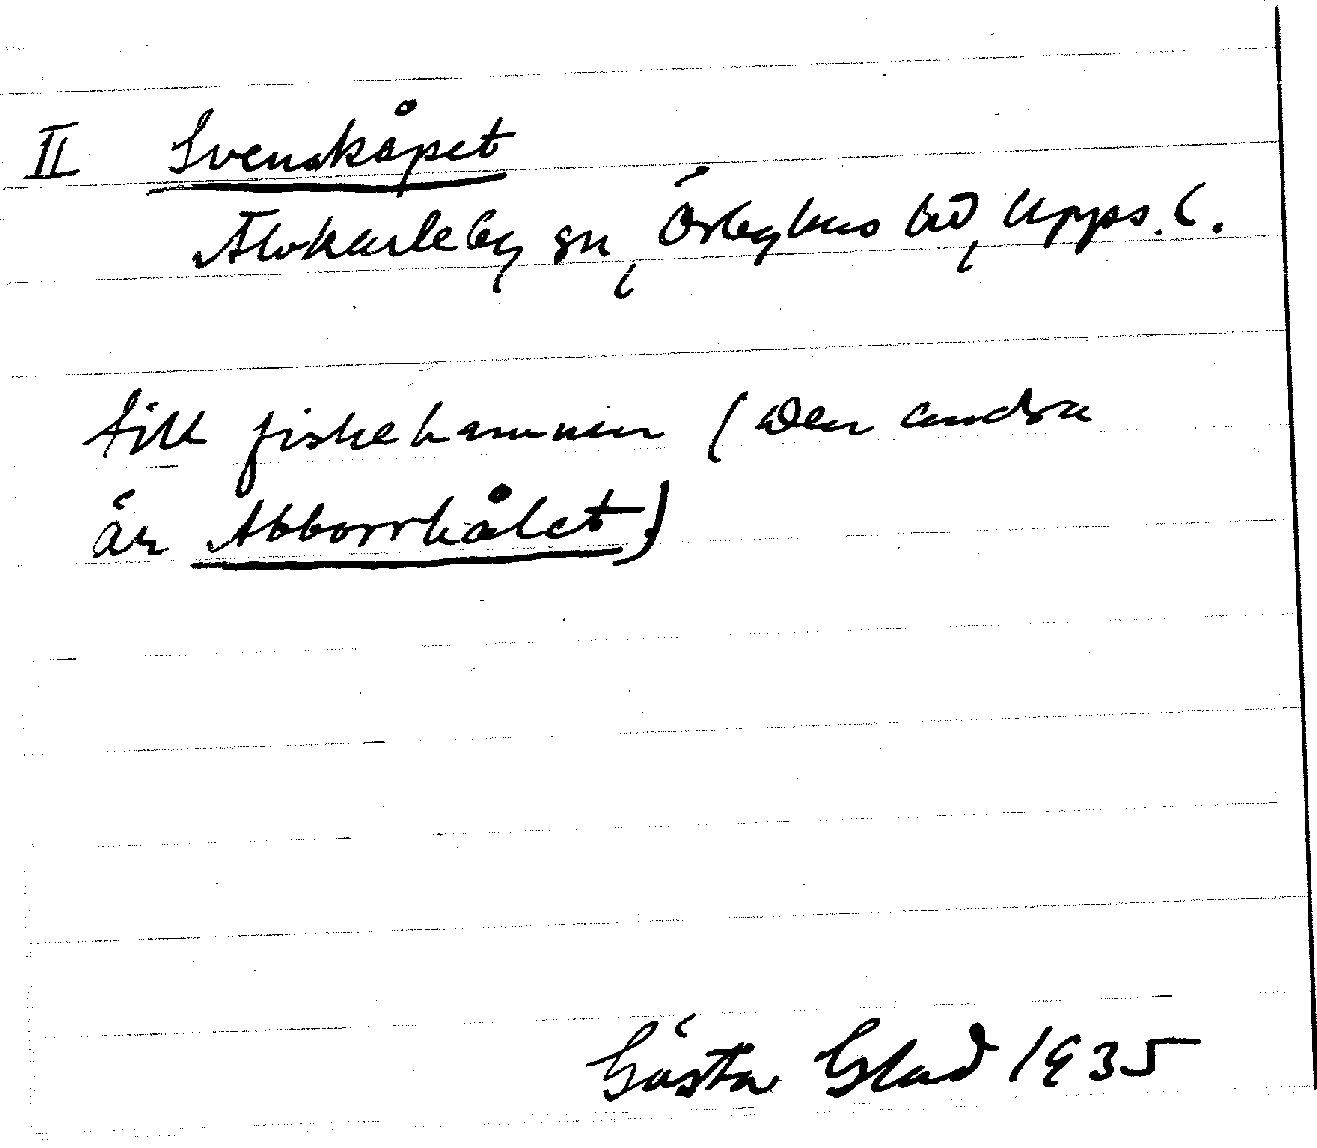 II Svenskåpet
Älvkarleby sn, Örbyhus hd, Upps. l.
till fiskehamnen (Den andra
är Abborrhålet)
Gösta Glad 1935